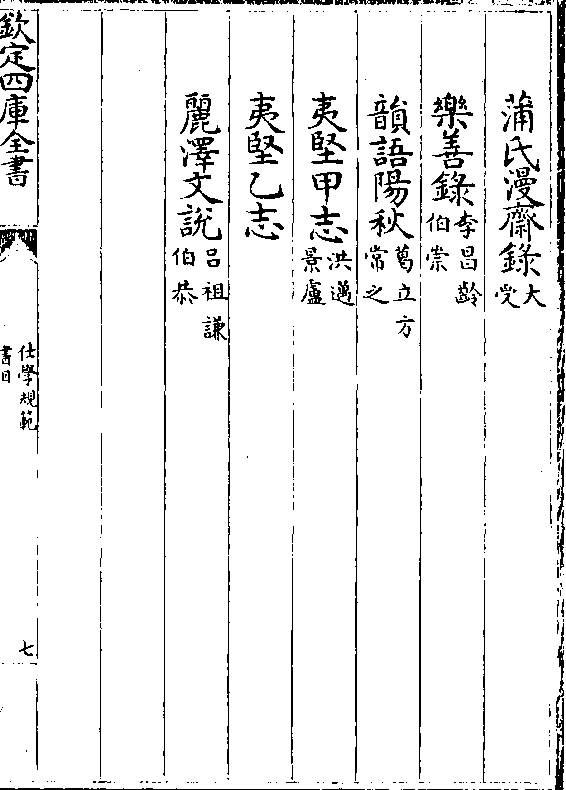 蒲氏漫齋錄大受
樂善錄李昌齡伯崇
韻語陽秋葛立方常之
夷堅甲志洪邁景盧
夷堅乙志
麗澤文說呂祖謙伯恭
欽定四庫全書
仕學規範
書目
七